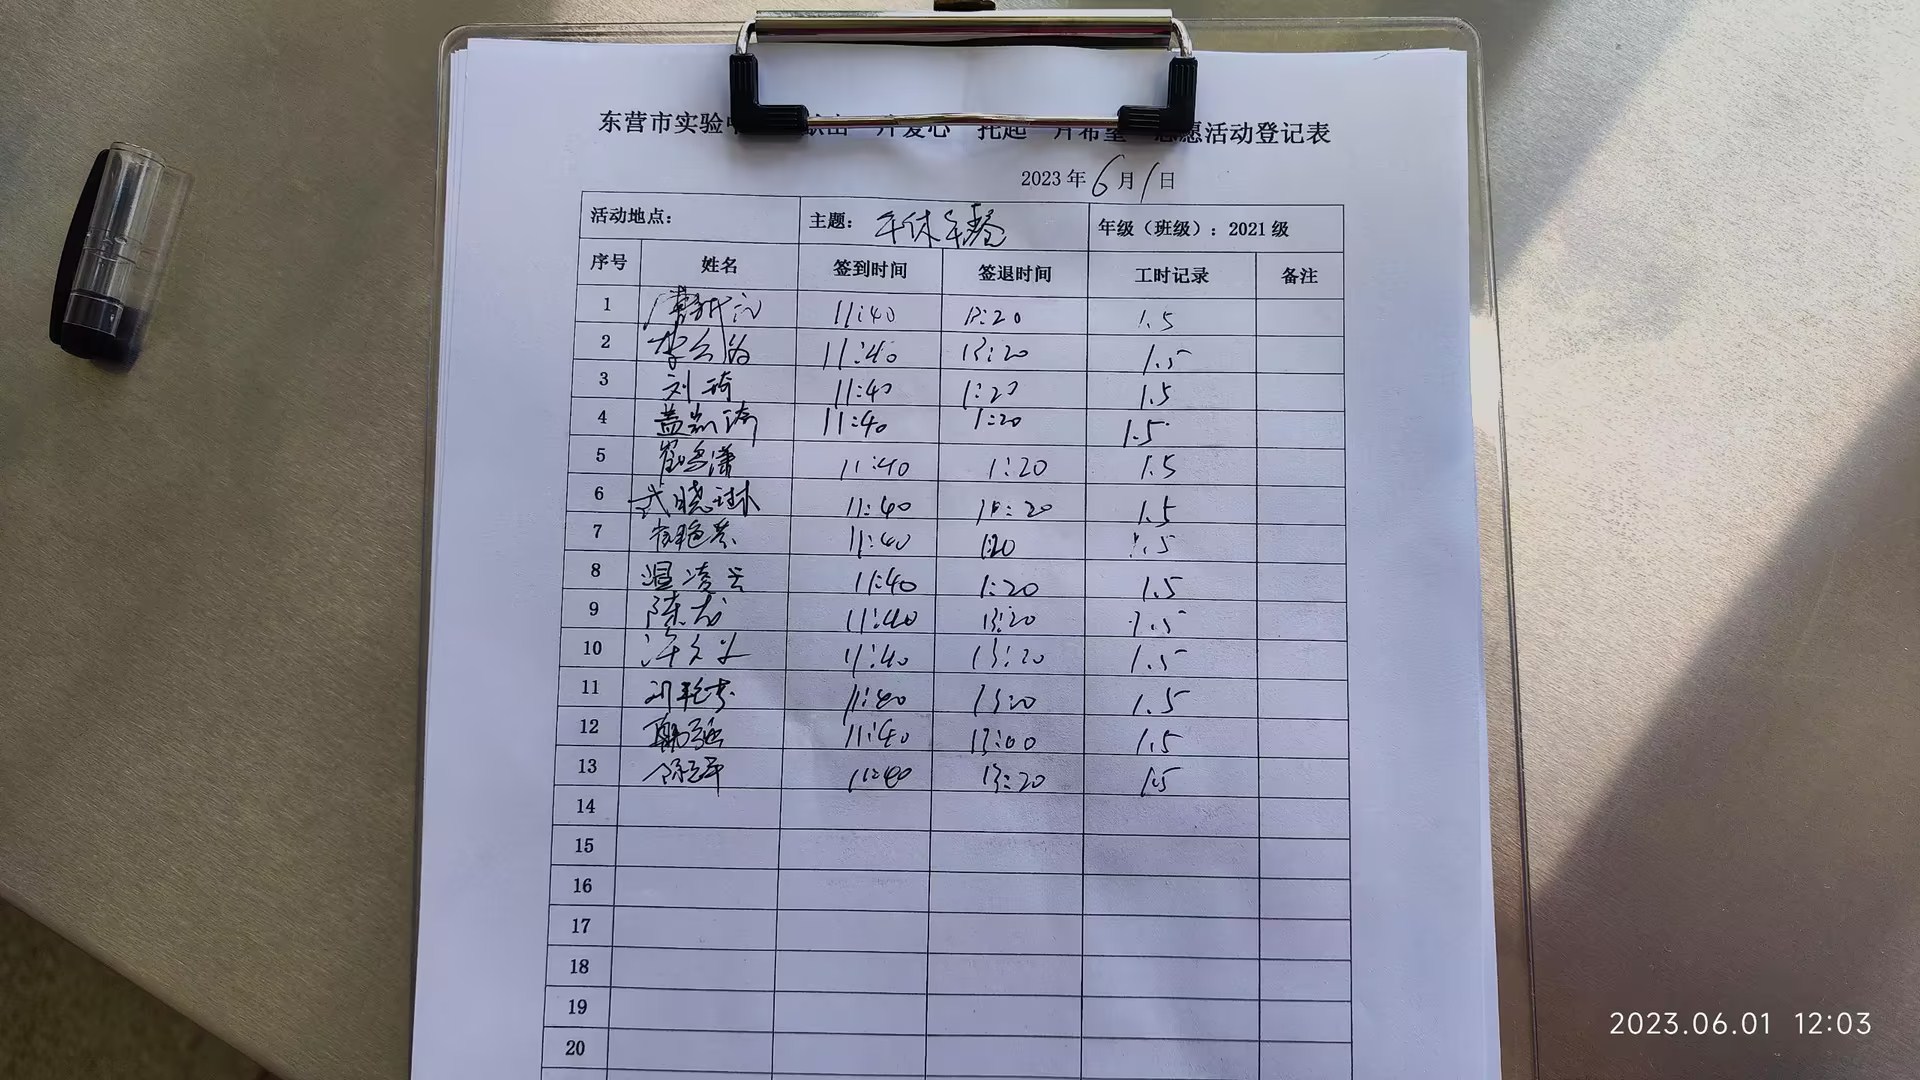 东营市实验 一片爱心 托起一片希望 志愿活动登记表
2023 年 6 月 1 日
活动地点： 主题： 午休午餐 年级（班级）：2021 级
序号 姓名 签到时间 签退时间 工时记录 备注
1 11:40 1:20 1.5
2 11:40 13:20 1.5
3 刘琦 11:40 1:20 1.5
4 盖凯琦 11:40 1:20 1.5
5 11:40 1:20 1.5
6 武晓琳 11:40 1:20 1.5
7 11:40 1:20 1.5
8 温凌云 11:40 1:20 1.5
9 11:40 13:20 1.5
10 11:40 13:20 1.5
11 11:40 13:20 1.5
12 11:40 13:00 1.5
13 11:40 13:20 1.5
14
15
16
17
18
19
20
2023.06.01 12:03